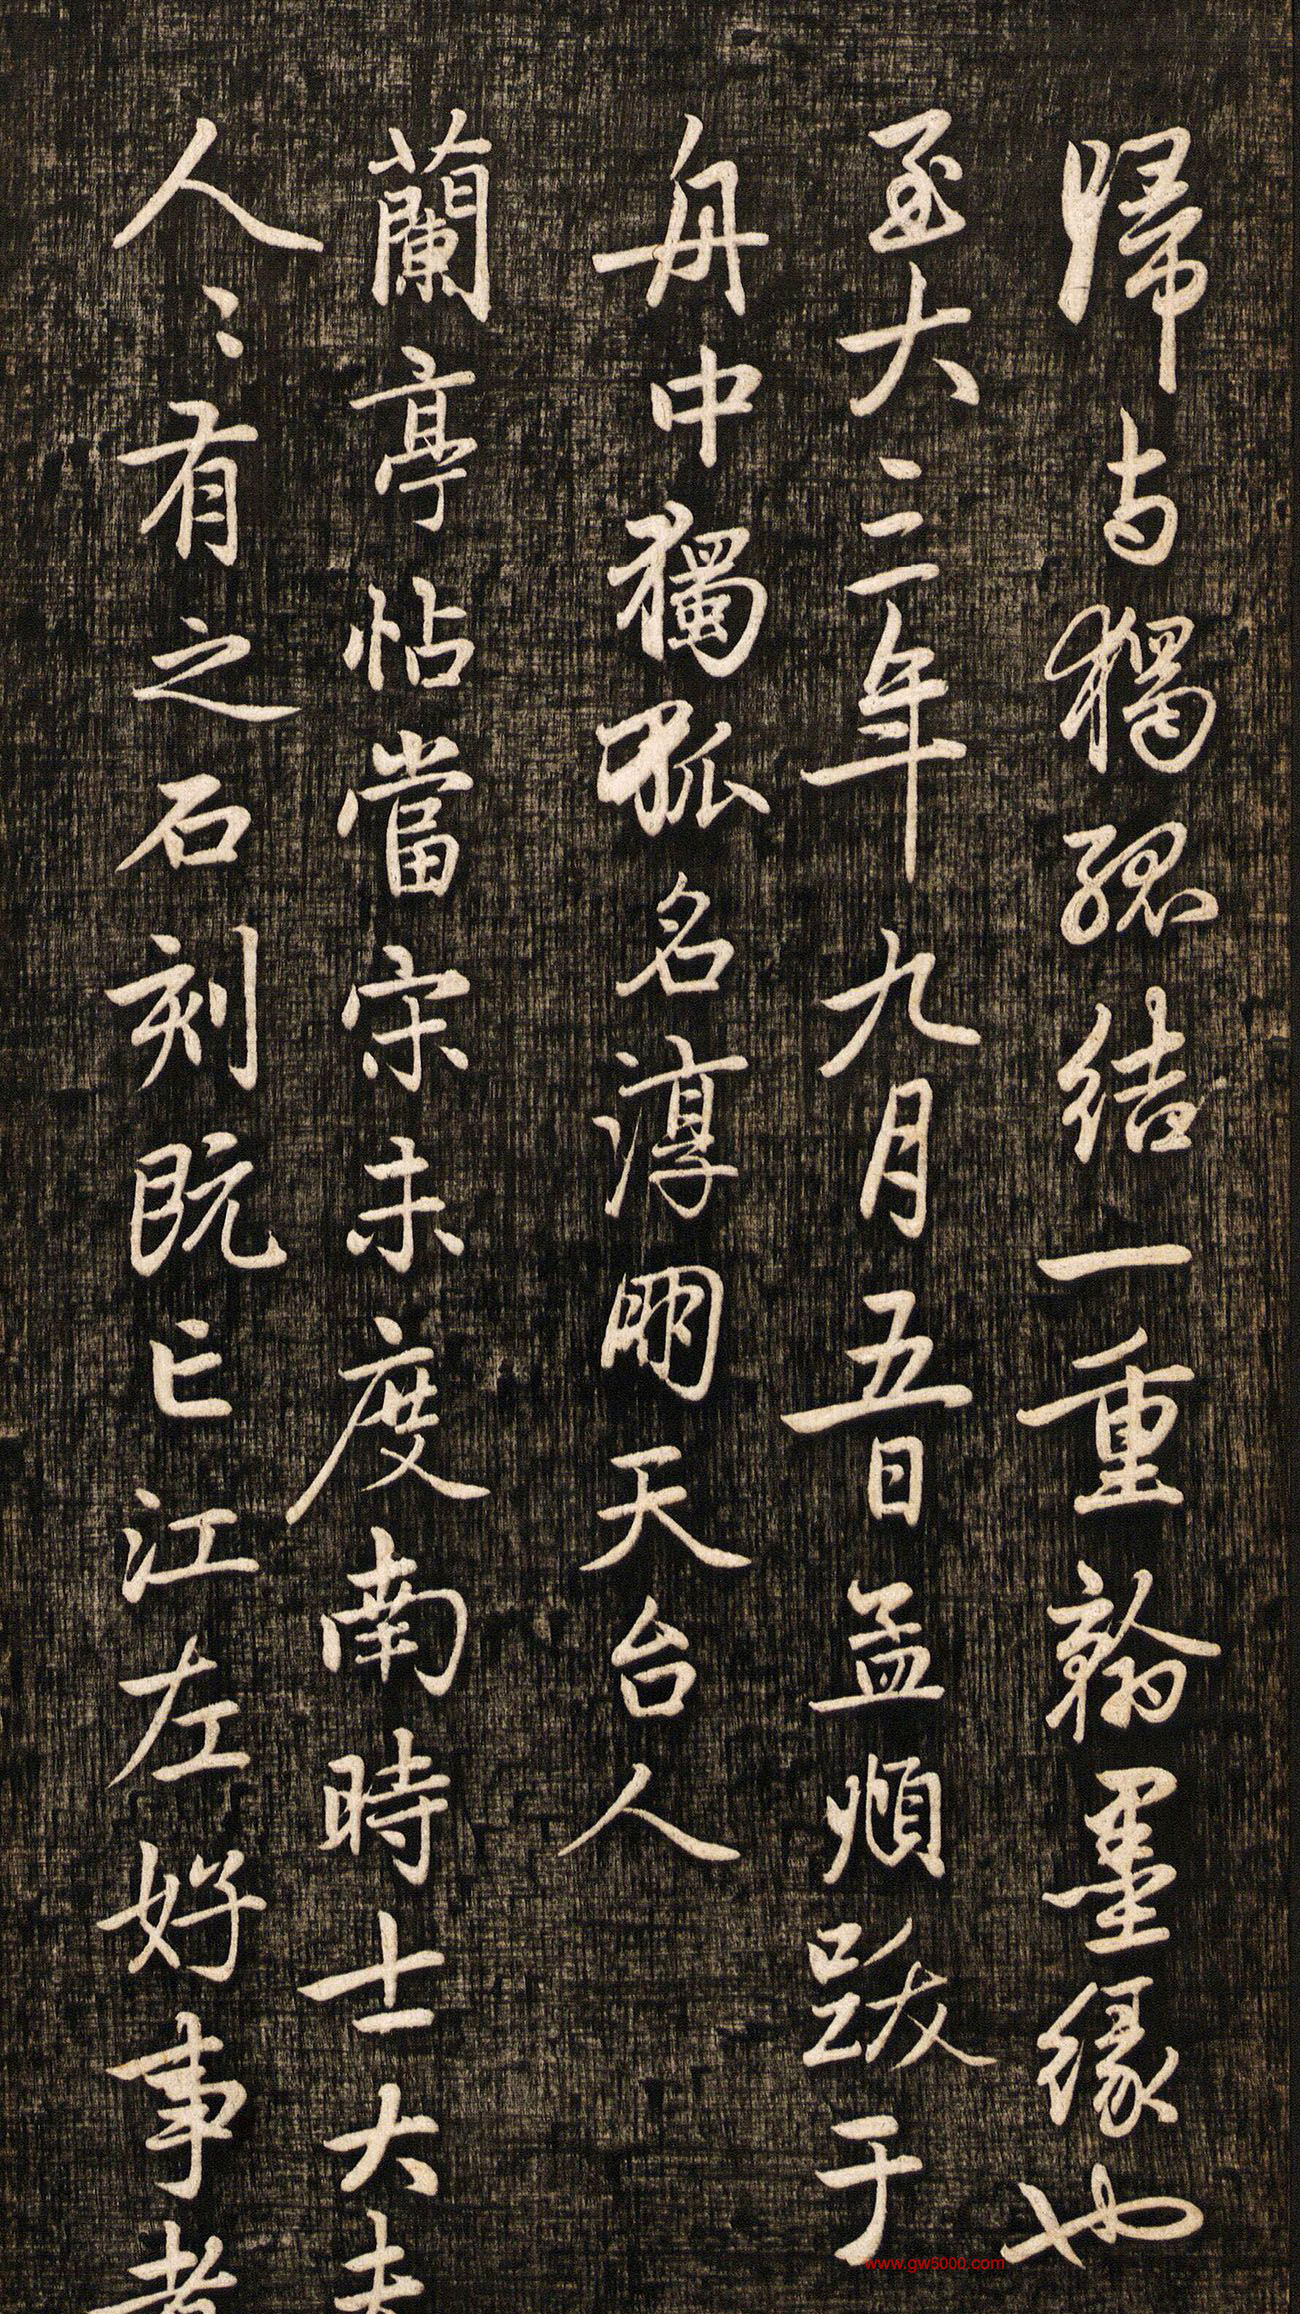 歸与獨孤結一重翰墨緣也
至大三年九月五日孟頫跋于
舟中獨孤名淳朋天台人
蘭亭帖當宋未度南時士大夫
人〻有之石刻既亡江左好事者
www.gw5000.com